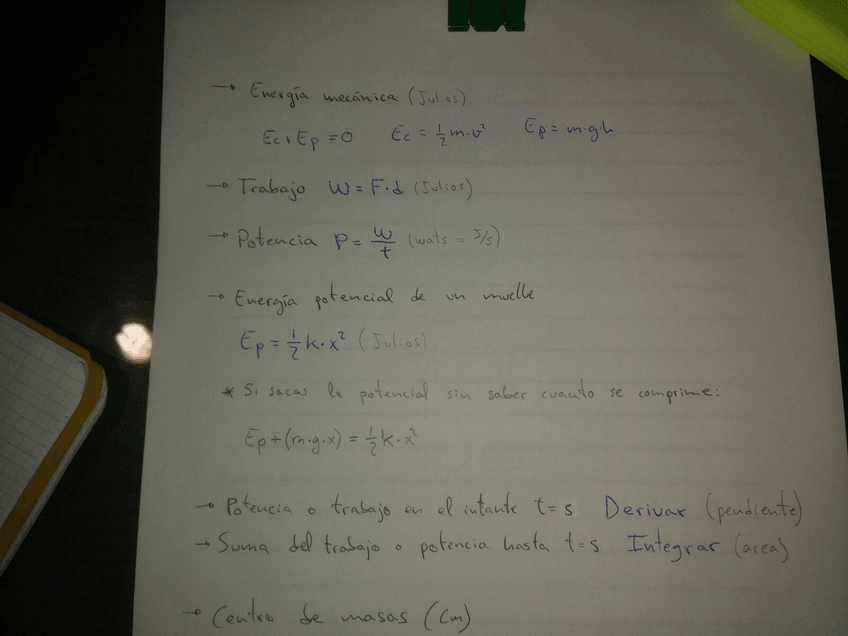 → Energía mecánica (Julios)
Ec + Ep = 0 Ec = 1/2 m·v² Ep = m·g·h
→ Trabajo W = F·d (Julios)
→ Potencia P = W/t (wats = J/s)
→ Energía potencial de un muelle
Ep = 1/2 k·x² (Julios)
* Si sacas la potencial sin saber cuanto se comprime:
Ep + (m·g·x) = 1/2 k·x²
→ Potencia o trabajo en el intante t = s Derivar (pendiente)
→ Suma del trabajo o potencia hasta t = s Integrar (area)
→ Centro de masas (Cm)